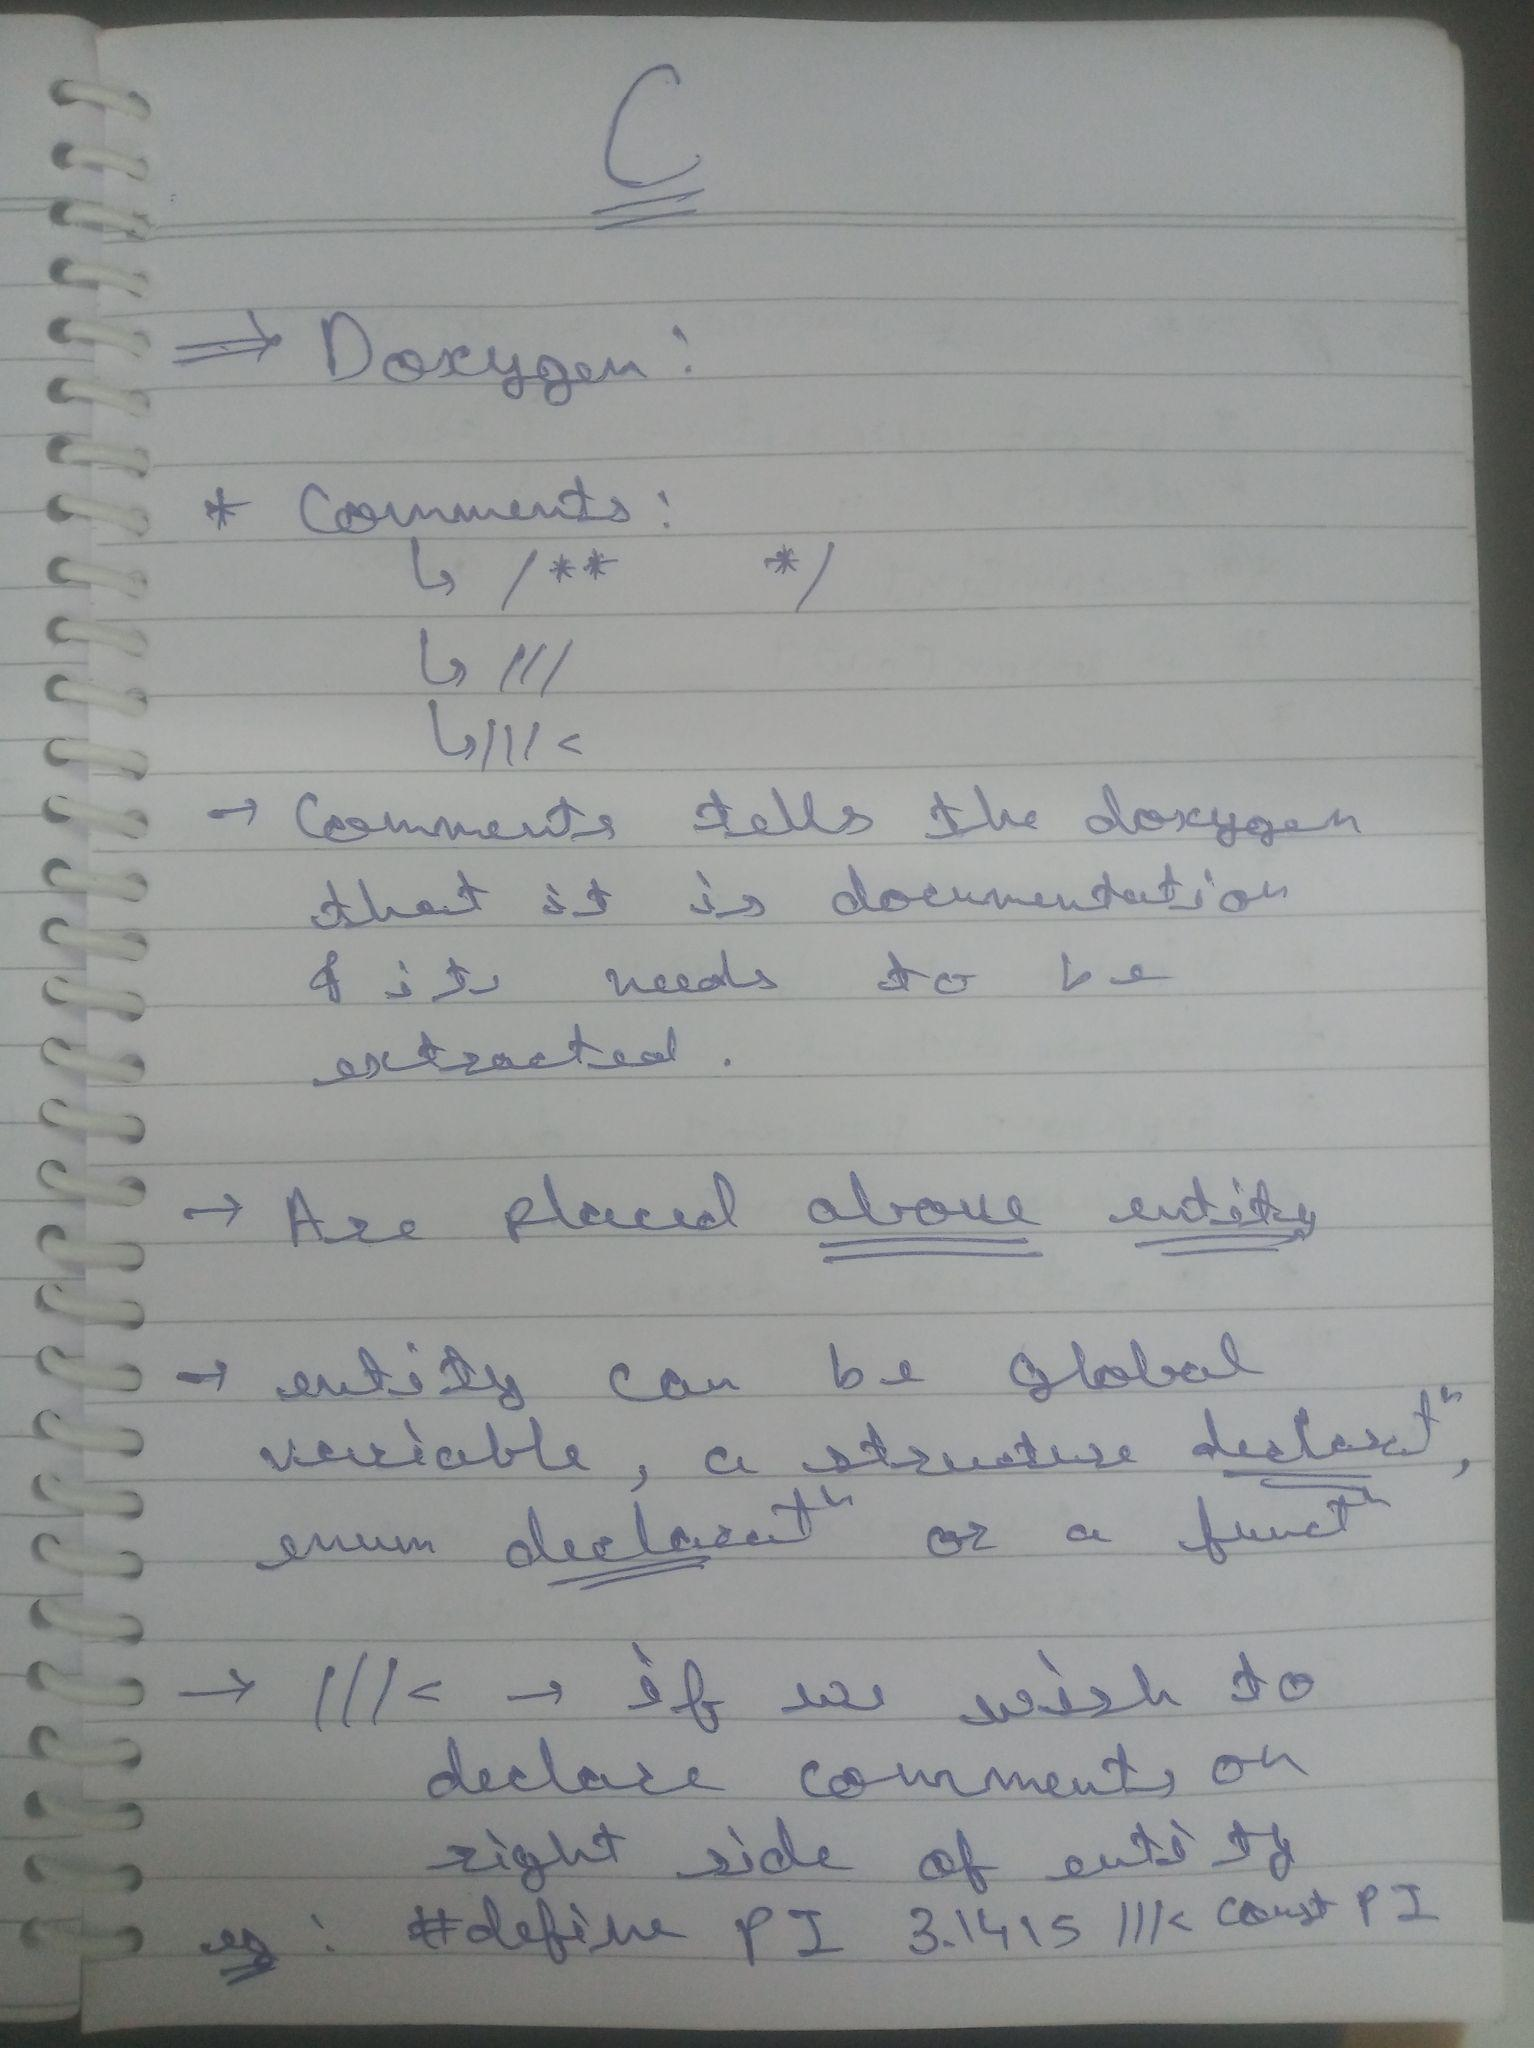 C
⇒ Doxygen:
* Comments:
↳ /** */
↳ ///
↳ ///<
→ Comments tells the doxygen
that it is documentation
& its needs to be
extracted.
→ Are placed above entity
→ entity can be global
variable, a structure declaratⁿ,
enum declaratⁿ or a functⁿ
→ ///< → if we wish to
declare comments on
right side of entity
eg: #define PI 3.1415 ///< const PI